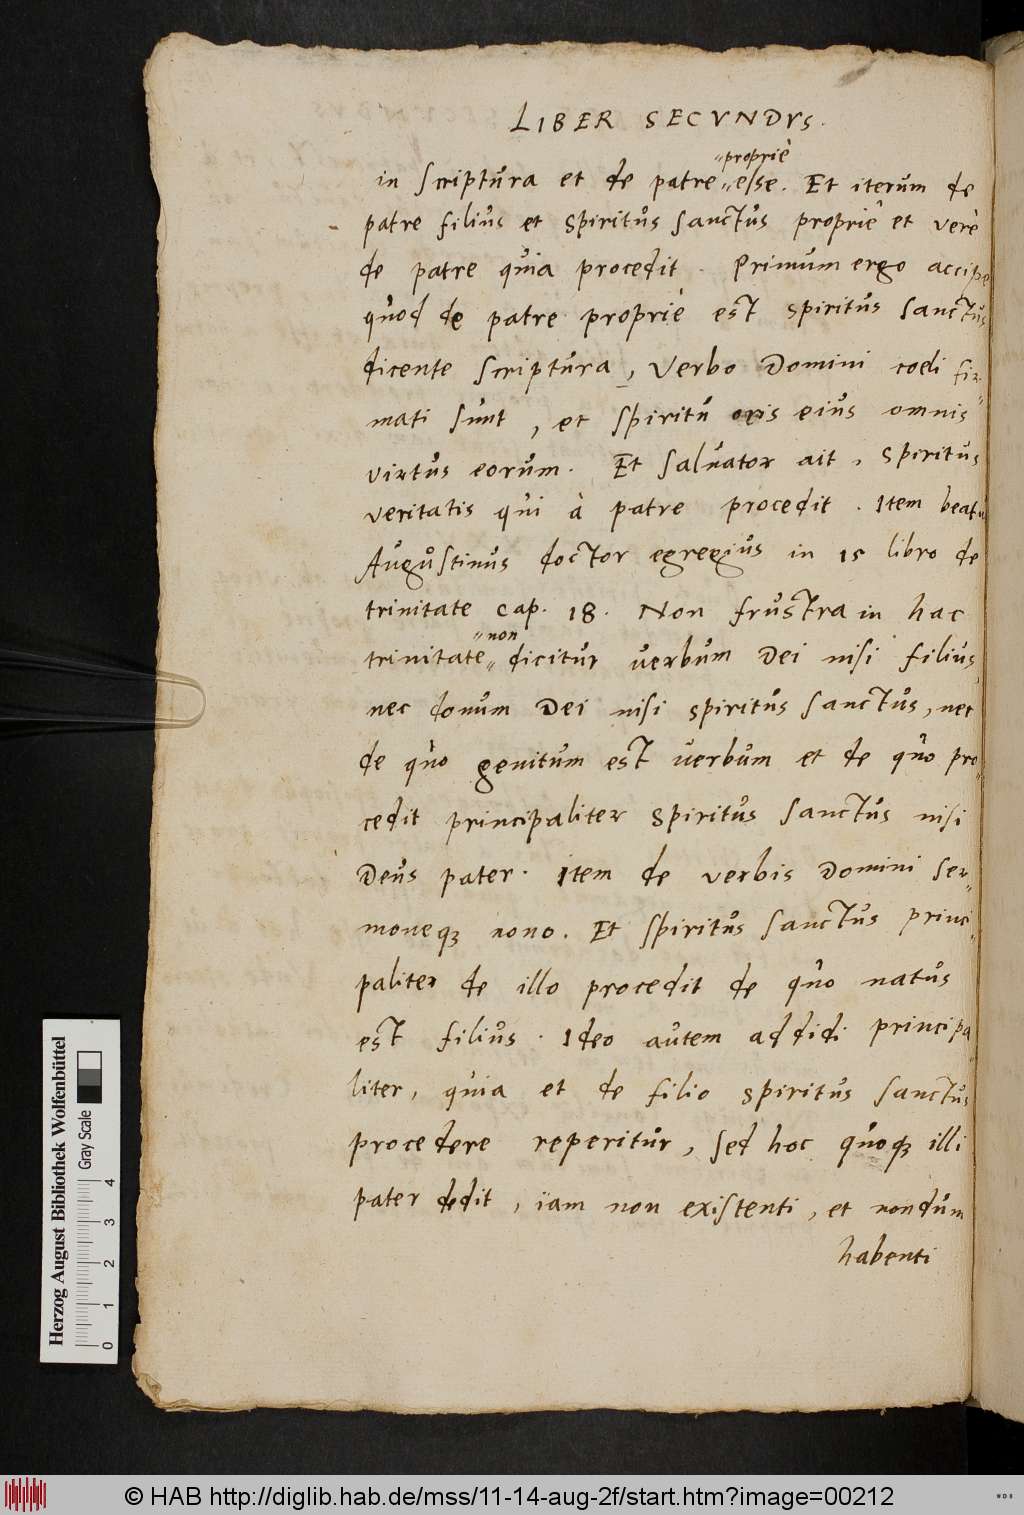 LIBER SECVNDVS.
"propriè
in scriptura et de patre "esse. Et iterum de
patre filius et spiritus sanctus propriè et verè
de patre quia procedit. Primum ergo accipe
quod de patre propriè est spiritus sanctus
dicente scriptura, Verbo Domini coeli fir-
mati sunt, et spiritu oris eius omnis
virtus eorum. Et salvator ait, spiritus
veritatis qui à patre procedit. Item beatus
Augustinus doctor egregius in 15 libro de
trinitate cap. 18. Non frustra in hac
"non
trinitate" dicitur verbum Dei nisi filius,
nec donum Dei nisi spiritus sanctus, nec
de quo genitum est verbum et de quo pro-
cedit principaliter spiritus sanctus nisi
Deus pater. Item de verbis Domini ser-
moneq; nono. Et spiritus sanctus princi-
paliter de illo procedit de quo natus
est filius. Ideo autem addidi principa
liter, quia et de filio spiritus sanctus
procedere reperitur, sed hoc quoq; illi
pater dedit, iam non existenti, et nondum
habenti
Herzog August Bibliothek Wolfenbüttel
Gray Scale
0 1 2 3 4
© HAB http://diglib.hab.de/mss/11-14-aug-2f/start.htm?image=00212